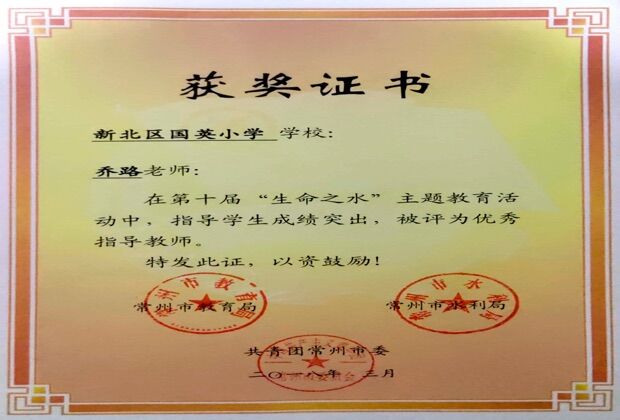 获奖证书
新北区国英小学 学校:
乔路老师:
在第十届“生命之水”主题教育活
动中,指导学生成绩突出,被评为优秀
指导教师。
特发此证,以资鼓励!
常州市教育局 常州市水利局
共青团常州市委
二〇一八年 三月